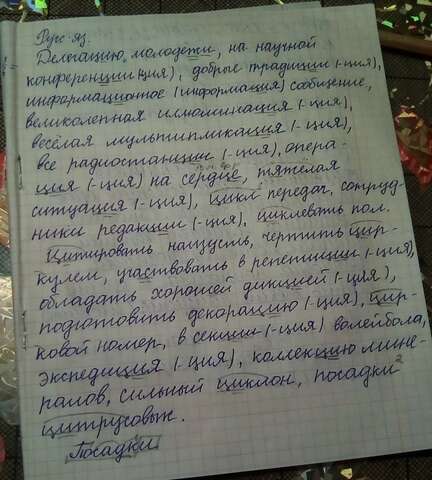 Рус. яз.
Делегацию молодежи, на научной
конференции (-ция), добрые традиции (-ция),
информационное (информация) сообщение,
великолепная иллюминация (-ция),
весёлая мультипликация (-ция),
все радиостанции (-ция), опера-
ция (-ция) на сердце, тяжёлая
ситуация (-ция), цикл передач, сотруд-
ники редакции (-ция), циклевать пол.
Цитировать наизусть, чертить цир-
кулем, участвовать в репетиции (-ция),
обладать хорошей дикцией (-ция),
подготовить декорацию (-ция), цир-
ковой номер, в секции (-ция) волейбола,
экспедиция (-ция), коллекцию мине-
ралов, сильный циклон, посадки²
цитрусовых.
Посадки